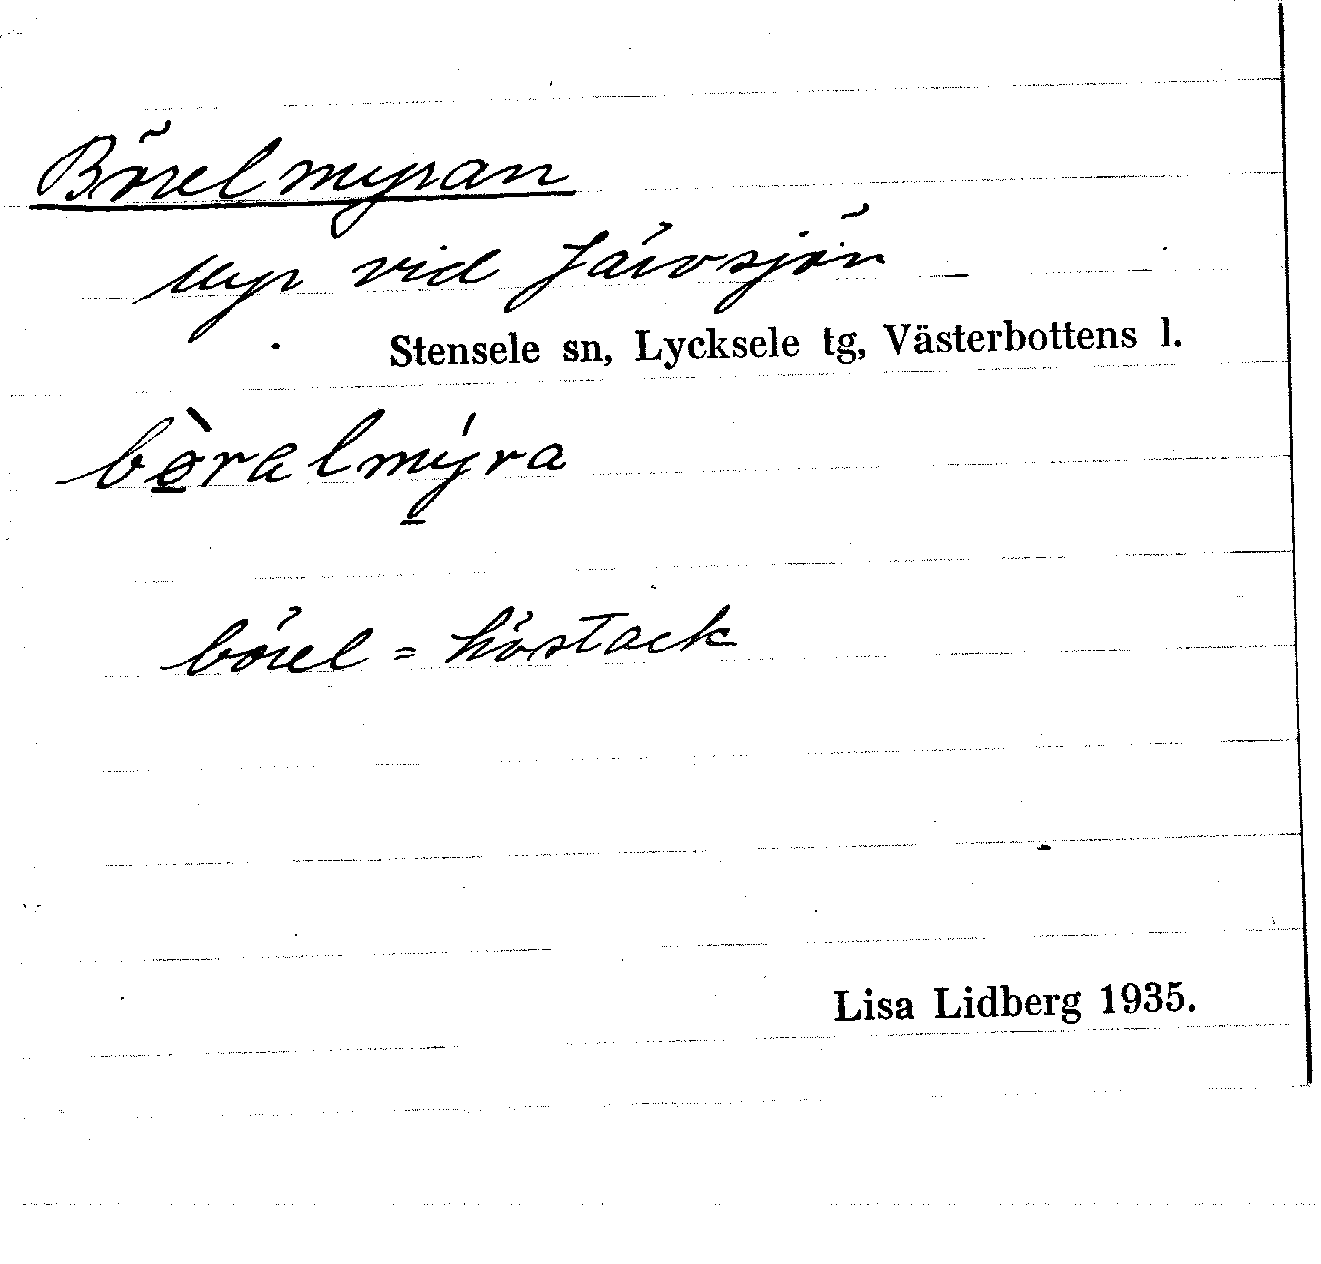 Börelmyran
Myr vid Järvsjön
Stensele sn, Lycksele tg, Västerbottens l.
bø̀ralmýra
börel = höstack
Lisa Lidberg 1935.